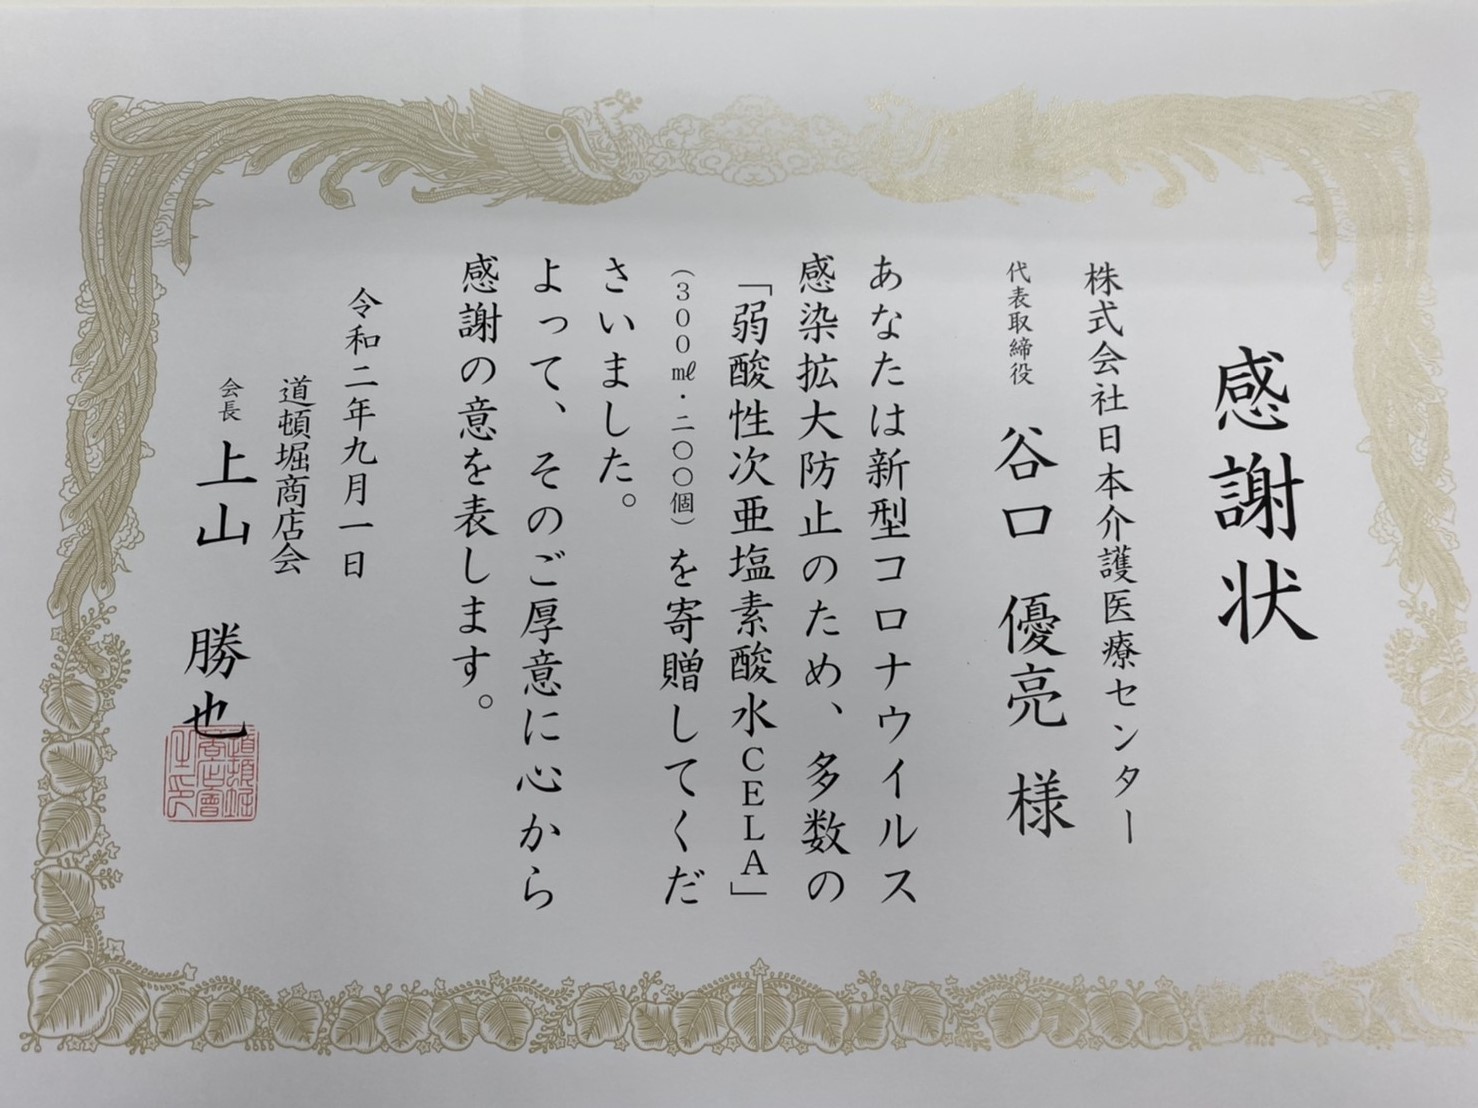 感謝状
株式会社日本介護医療センター
代表取締役 谷口 優亮 様
あなたは新型コロナウイルス
感染拡大防止のため、多数の
「弱酸性次亜塩素酸水CELA」
(300㎖・二〇〇個)を寄贈してくだ
さいました。
よって、そのご厚意に心から
感謝の意を表します。
令和二年九月一日
道頓堀商店会
会長 上山 勝也
道頓堀
商店會